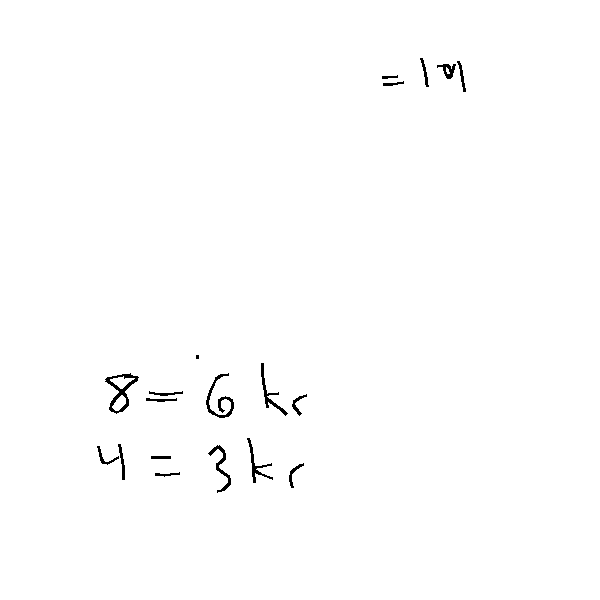 = 19
8 = 6 kr
4 = 3 kr